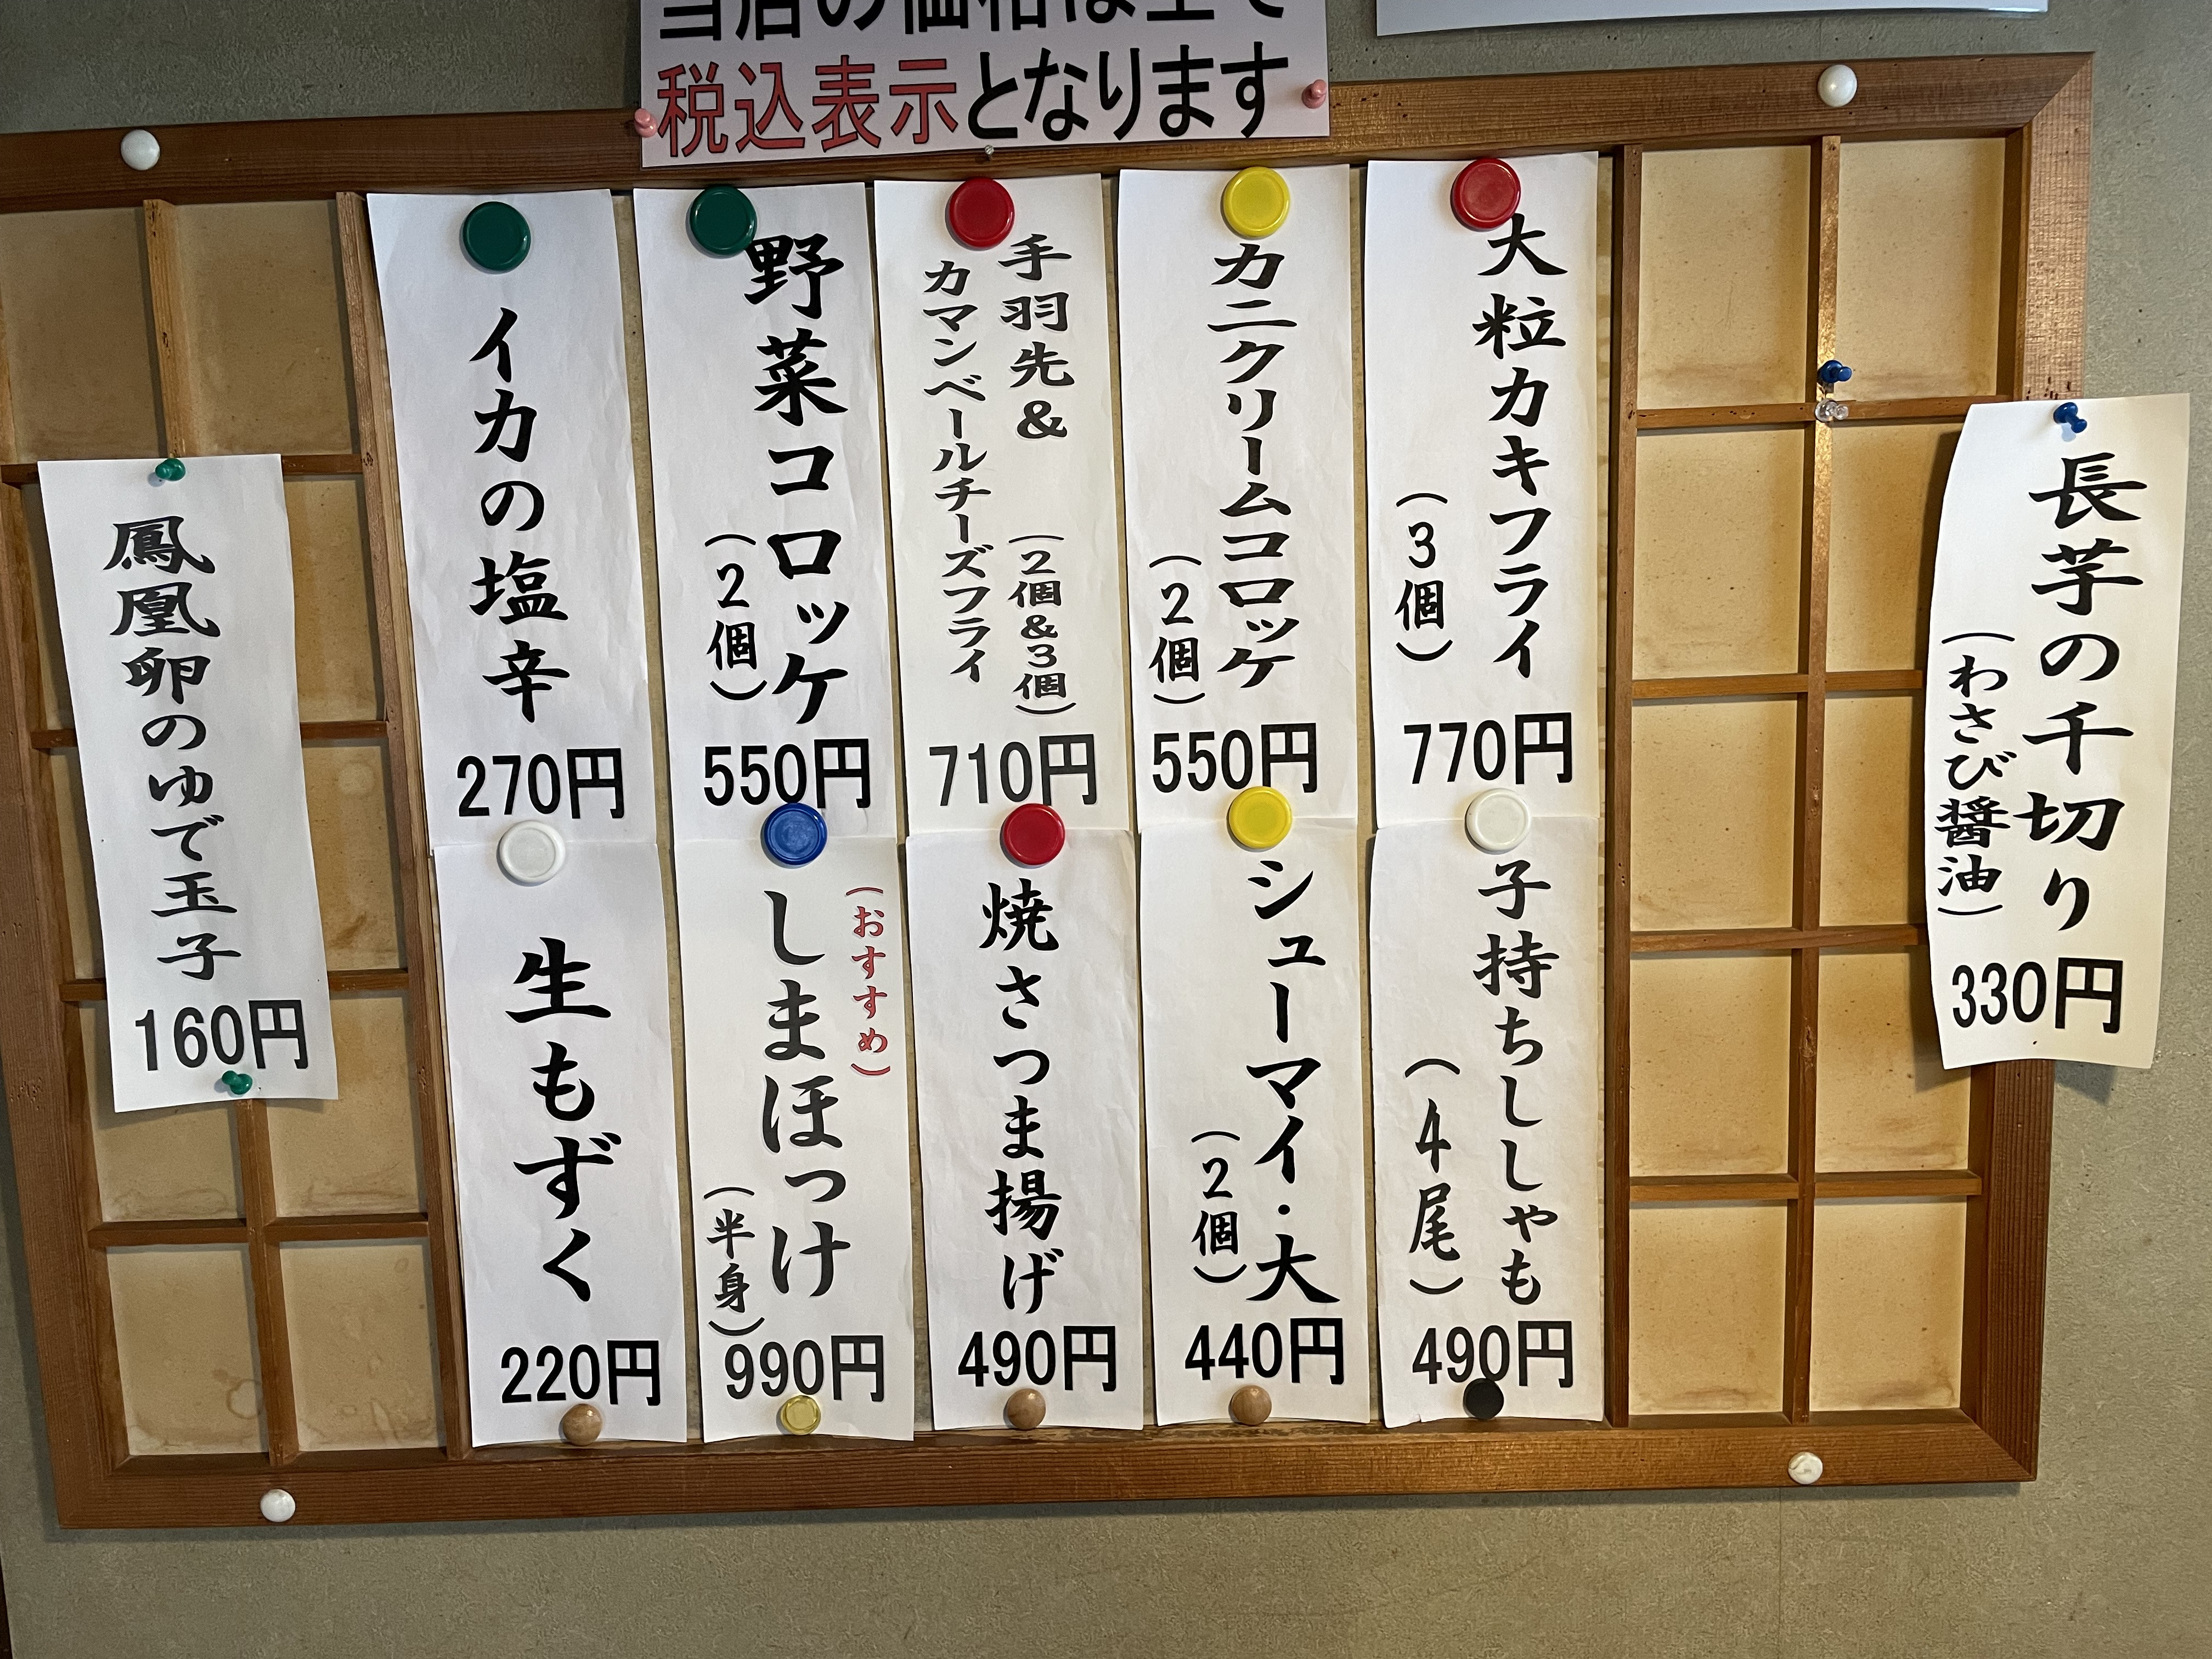 当店の価格は全て
税込表示となります
長芋の千切り
（わさび醤油）
330円
大粒カキフライ
（3個）
770円
カニクリームコロッケ
（2個）
550円
手羽先&
（2個&3個）
カマンベールチーズフライ
710円
野菜コロッケ
（2個）
550円
イカの塩辛
270円
子持ちししゃも
（4尾）
490円
シューマイ・大
（2個）
440円
焼さつま揚げ
490円
（おすすめ）
しまほっけ
（半身）
990円
生もずく
220円
鳳凰卵のゆで玉子
160円